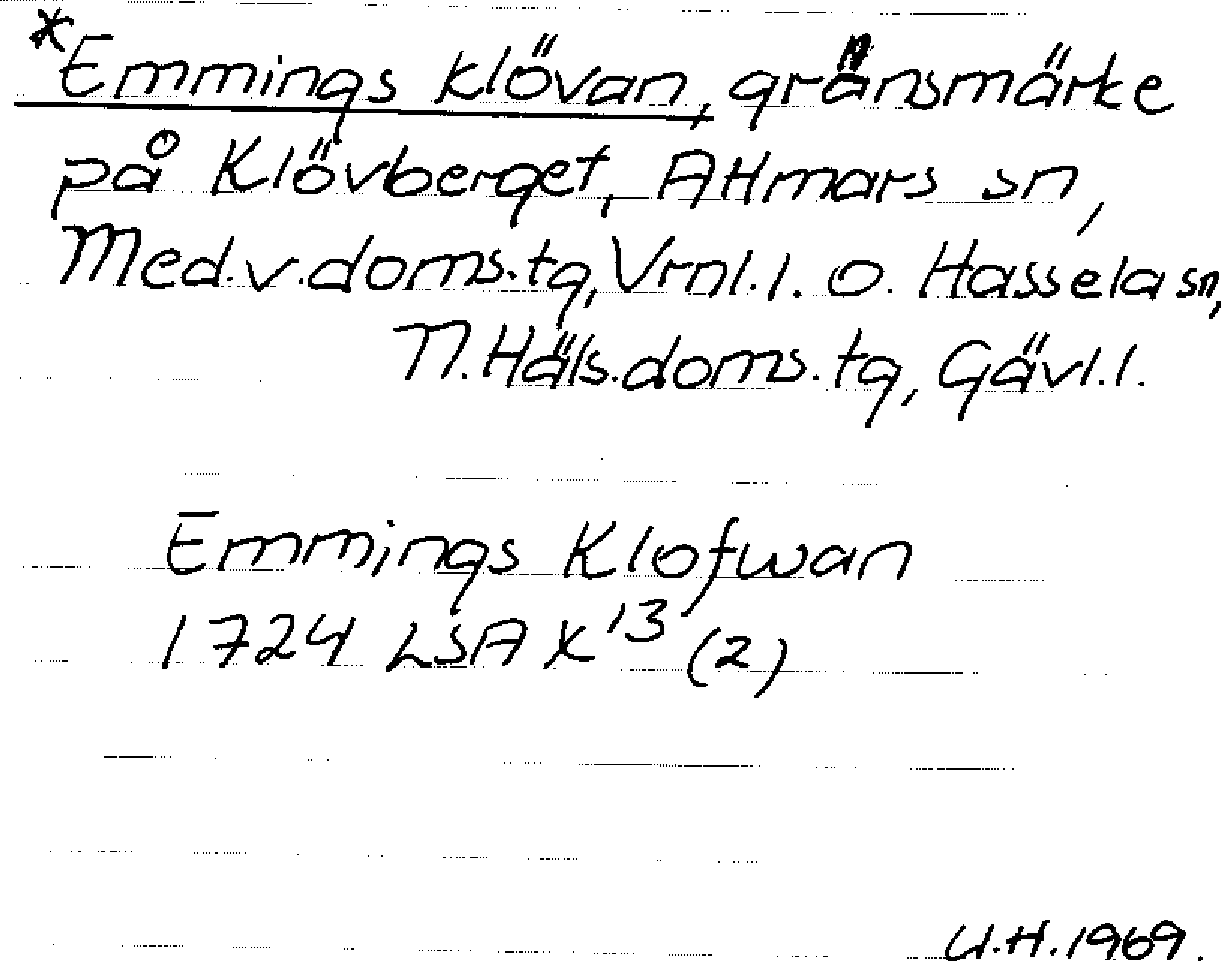 *Emmings klövan, gränsmärke
på Klövberget, Attmars sn,
Med.v.doms.tg, Vrnl.l. o. Hassela sn,
N.Häls.doms.tg, Gävl.l.
Emmings Klofwan
1724 LSA X 13 (2)
U.H.1969.